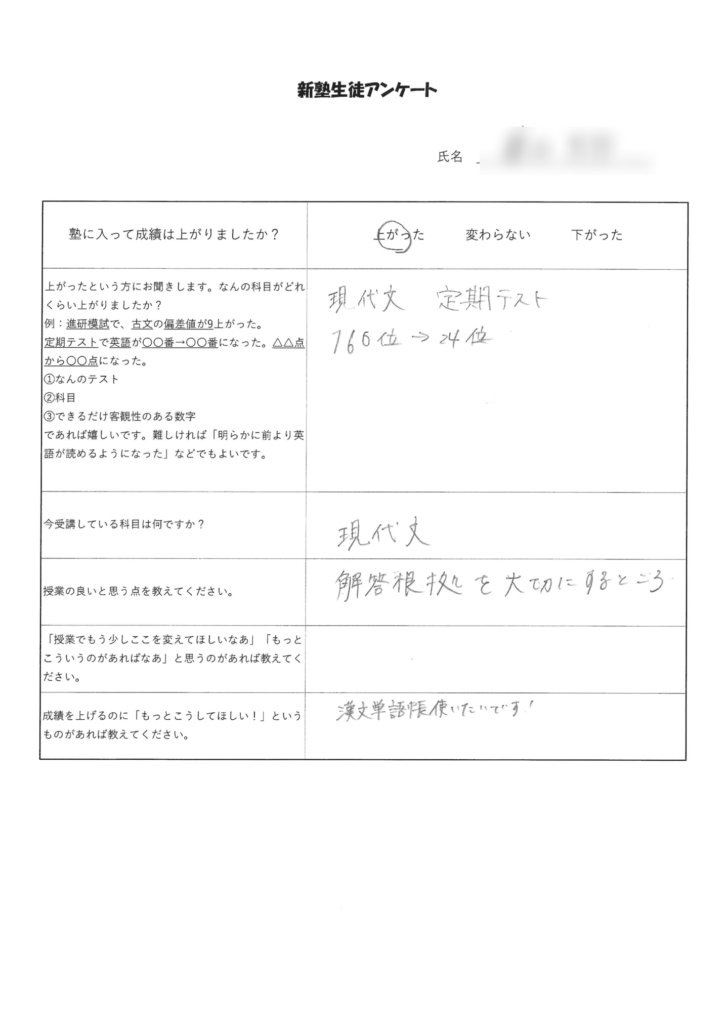 新塾生徒アンケート
氏名
塾に入って成績は上がりましたか？
上がった 変わらない 下がった
上がったという方にお聞きします。なんの科目がどれ
くらい上がりましたか？
例：進研模試で、古文の偏差値が9上がった。
定期テストで英語が〇〇番→〇〇番になった。△△点
から〇〇点になった。
①なんのテスト
②科目
③できるだけ客観性のある数字
であれば嬉しいです。難しければ「明らかに前より英
語が読めるようになった」などでもよいです。
現代文 定期テスト
160位→24位
今受講している科目は何ですか？
現代文
授業の良いと思う点を教えてください。
解答根拠を大切にするところ
「授業でもう少しここを変えてほしいなあ」「もっと
こういうのがあればなあ」と思うのがあれば教えてく
ださい。
成績を上げるのに「もっとこうしてほしい！」という
ものがあれば教えてください。
漢文単語帳使いたいです！